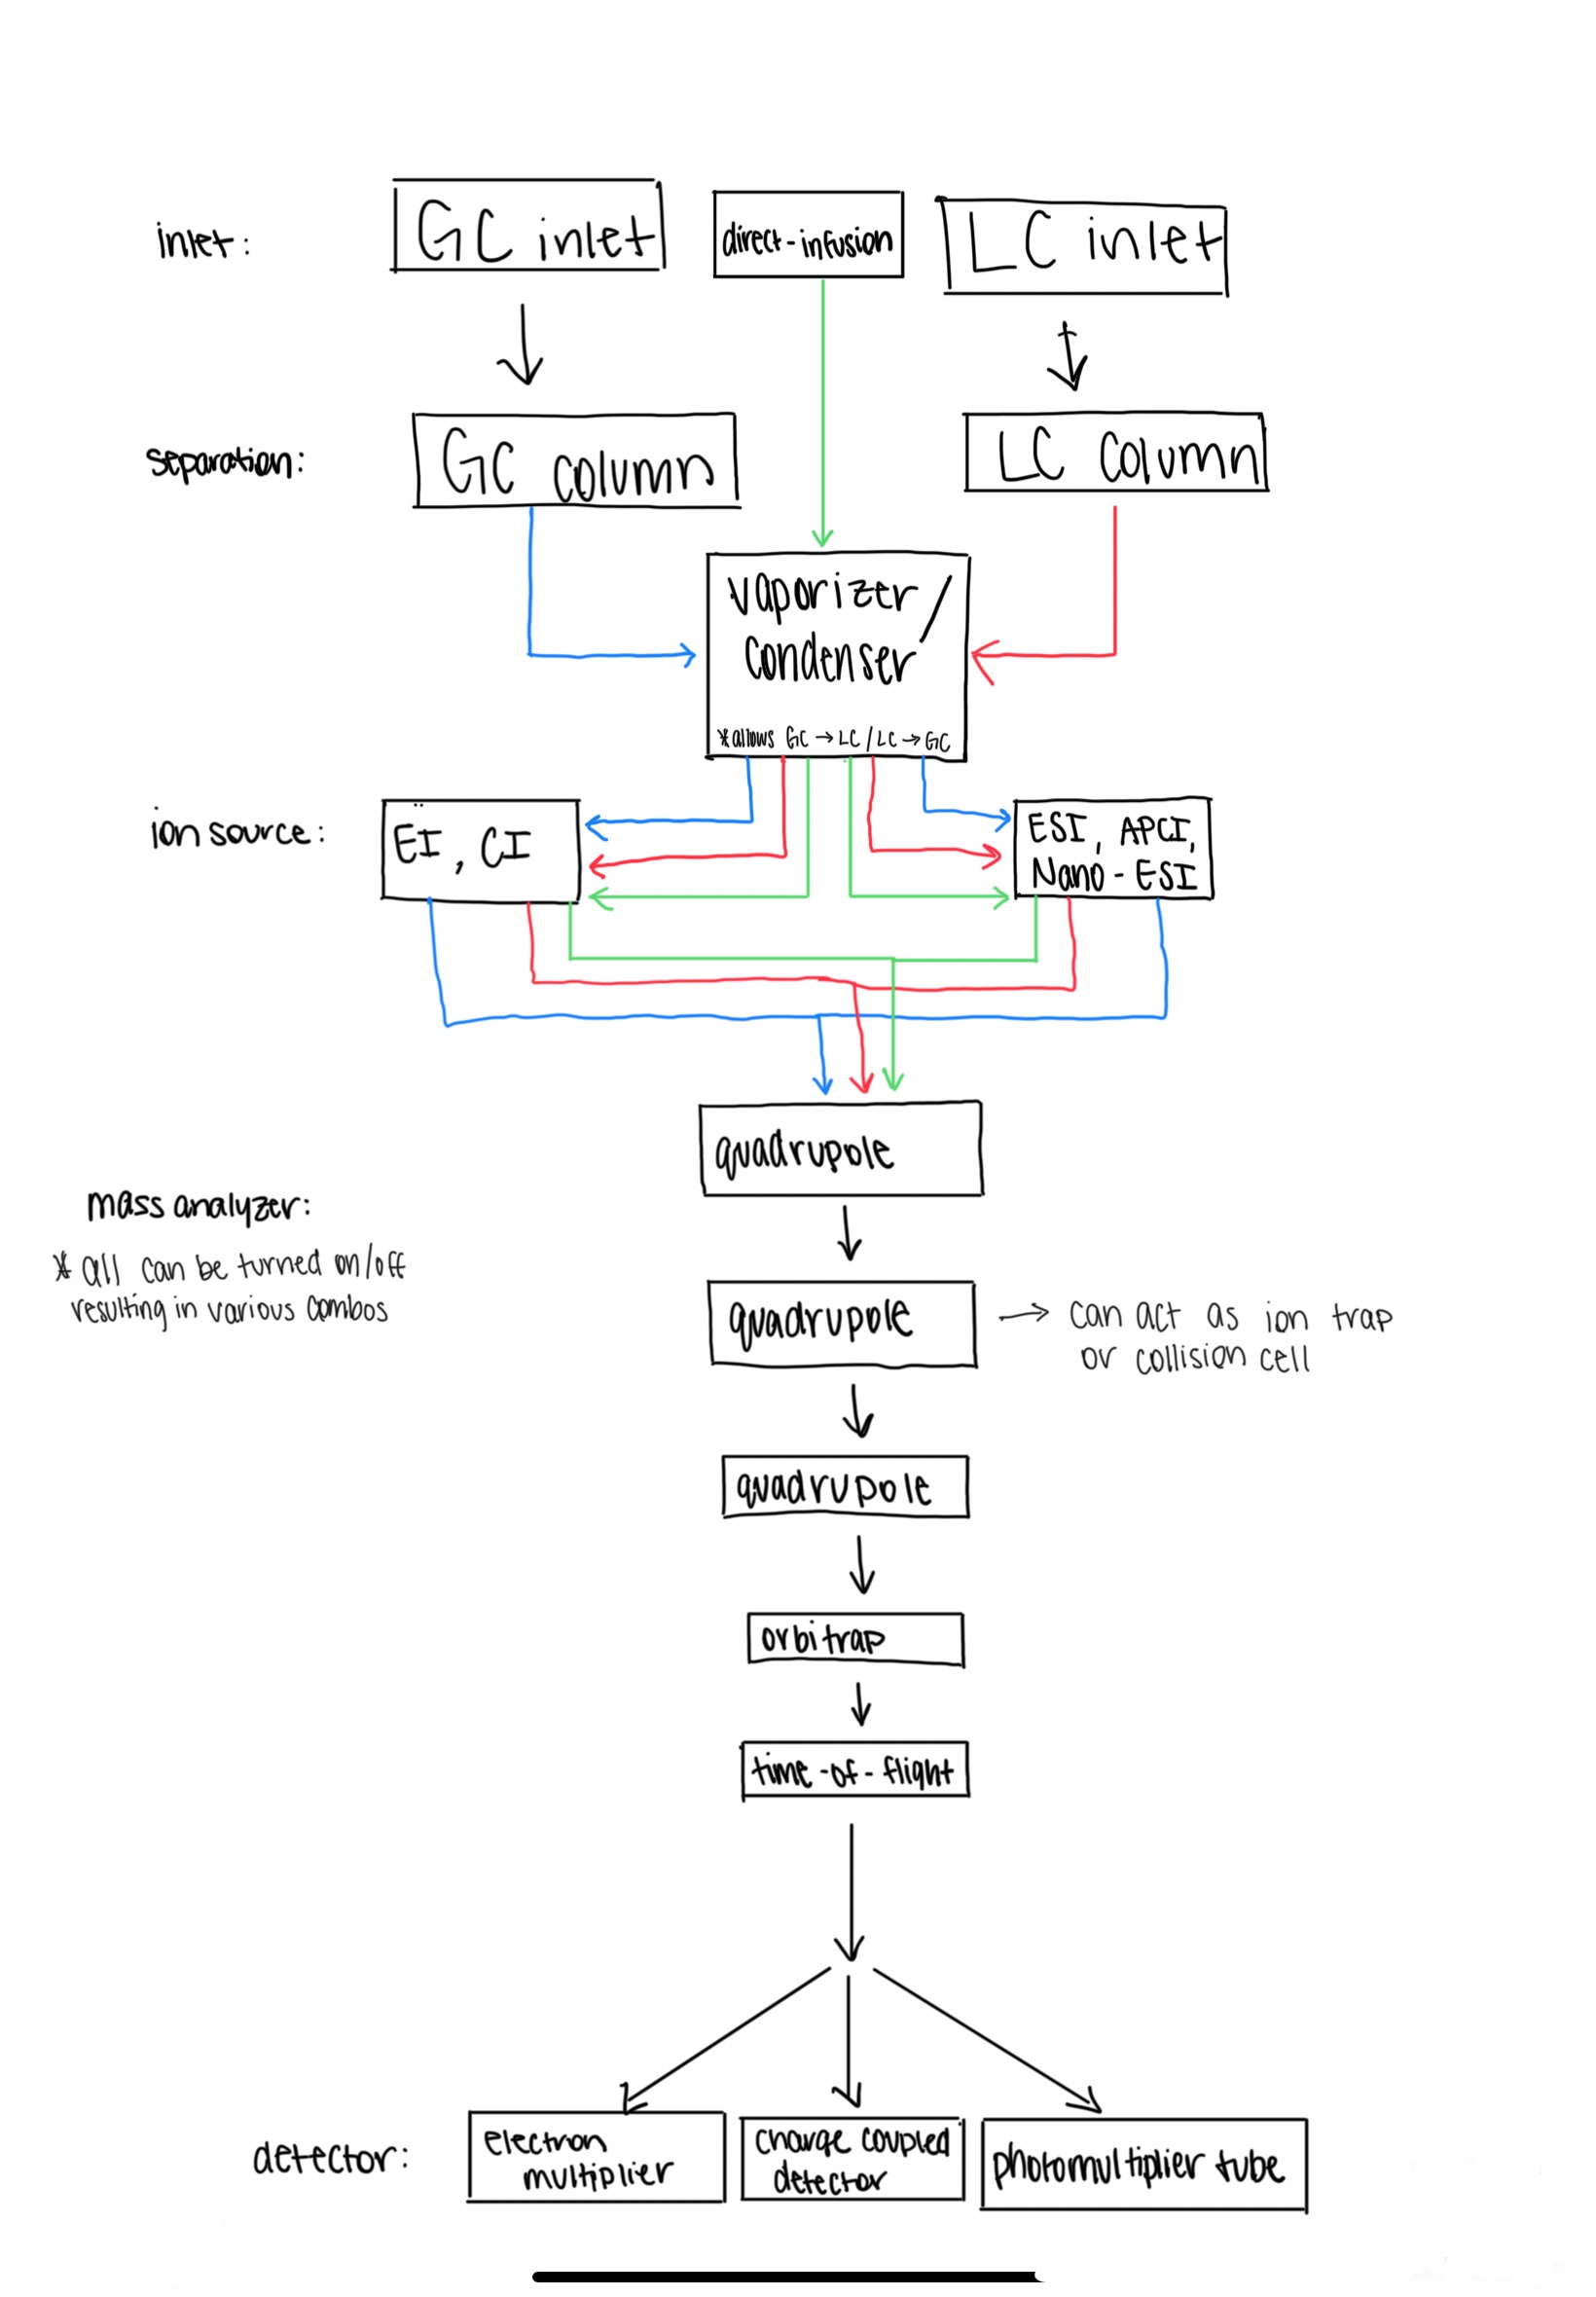 inlet:
GC inlet
direct-infusion
LC inlet
separation:
GC column
LC Column
vaporizer/
condenser
*allows GC → LC / LC → GC
ion source:
EI, CI
ESI, APCI,
Nano-ESI
quadrupole
mass analyzer:
* all can be turned on/off
resulting in various combos
quadrupole
→ can act as ion trap
or collision cell
quadrupole
orbitrap
time-of-flight
detector:
electron
multiplier
charge coupled
detector
photomultiplier tube